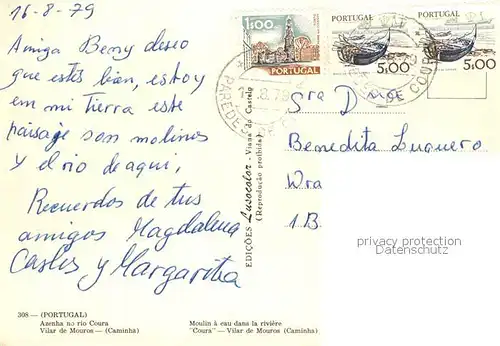 16-8-79
Amiga Beny deseo
que estés bien, estoy
en mi tierra este
paisage son molinos
y el rio de aqui,
Recuerdos de tus
amigos Magdalena
Carlos y Margarita
308 — (PORTUGAL)
Azenha no rio Coura
Vilar de Mouros — (Caminha)
Moulin à eau dans la rivière
"Coura" — Vilar de Mouros (Caminha)
EDIÇÕES Lusocolor - Viana do Castelo
(Reprodução proibida)
1$00
PORTUGAL
PORTUGAL
5.00
PORTUGAL
5.00
PAREDES DE COURA
8.79
DE COURA
Sra D
Benedita Luquero
Wra
1B.
privacy protection
Datenschutz